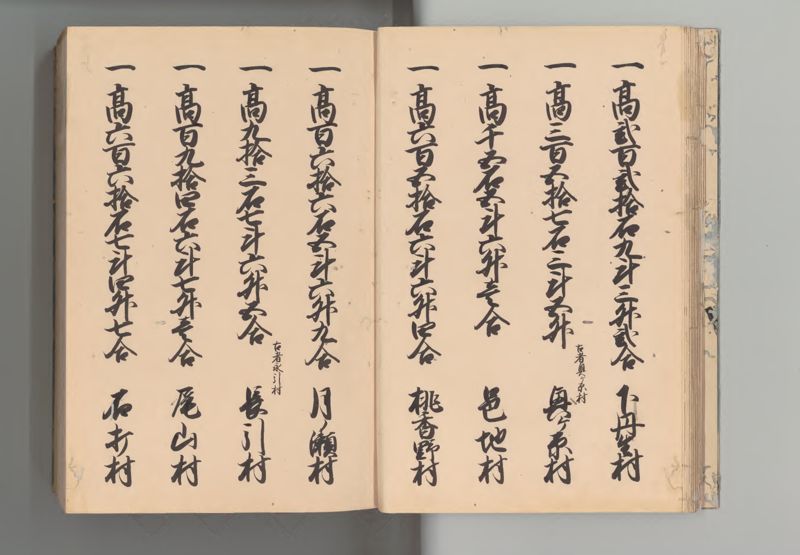 一 高弐百弐拾石九斗三升弐合 下丹生村
一 高三百五拾七石三斗五升 古者奥ヶ原村 奥ヶ原村
一 高千五石五斗六升壱合 邑地村
一 高六百五拾石六斗六升四合 桃香野村
一 高百六拾六石五斗六升九合 月ノ瀬村
一 高九拾三石七斗六升五合 古者永引村 長引村
一 高百九拾四石六斗七升壱合 尾山村
一 高六百六拾石七斗四升七合 石打村